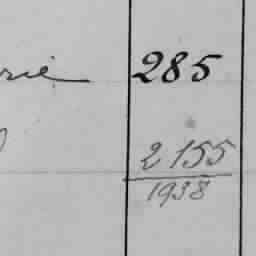 rie 285
2155
1938